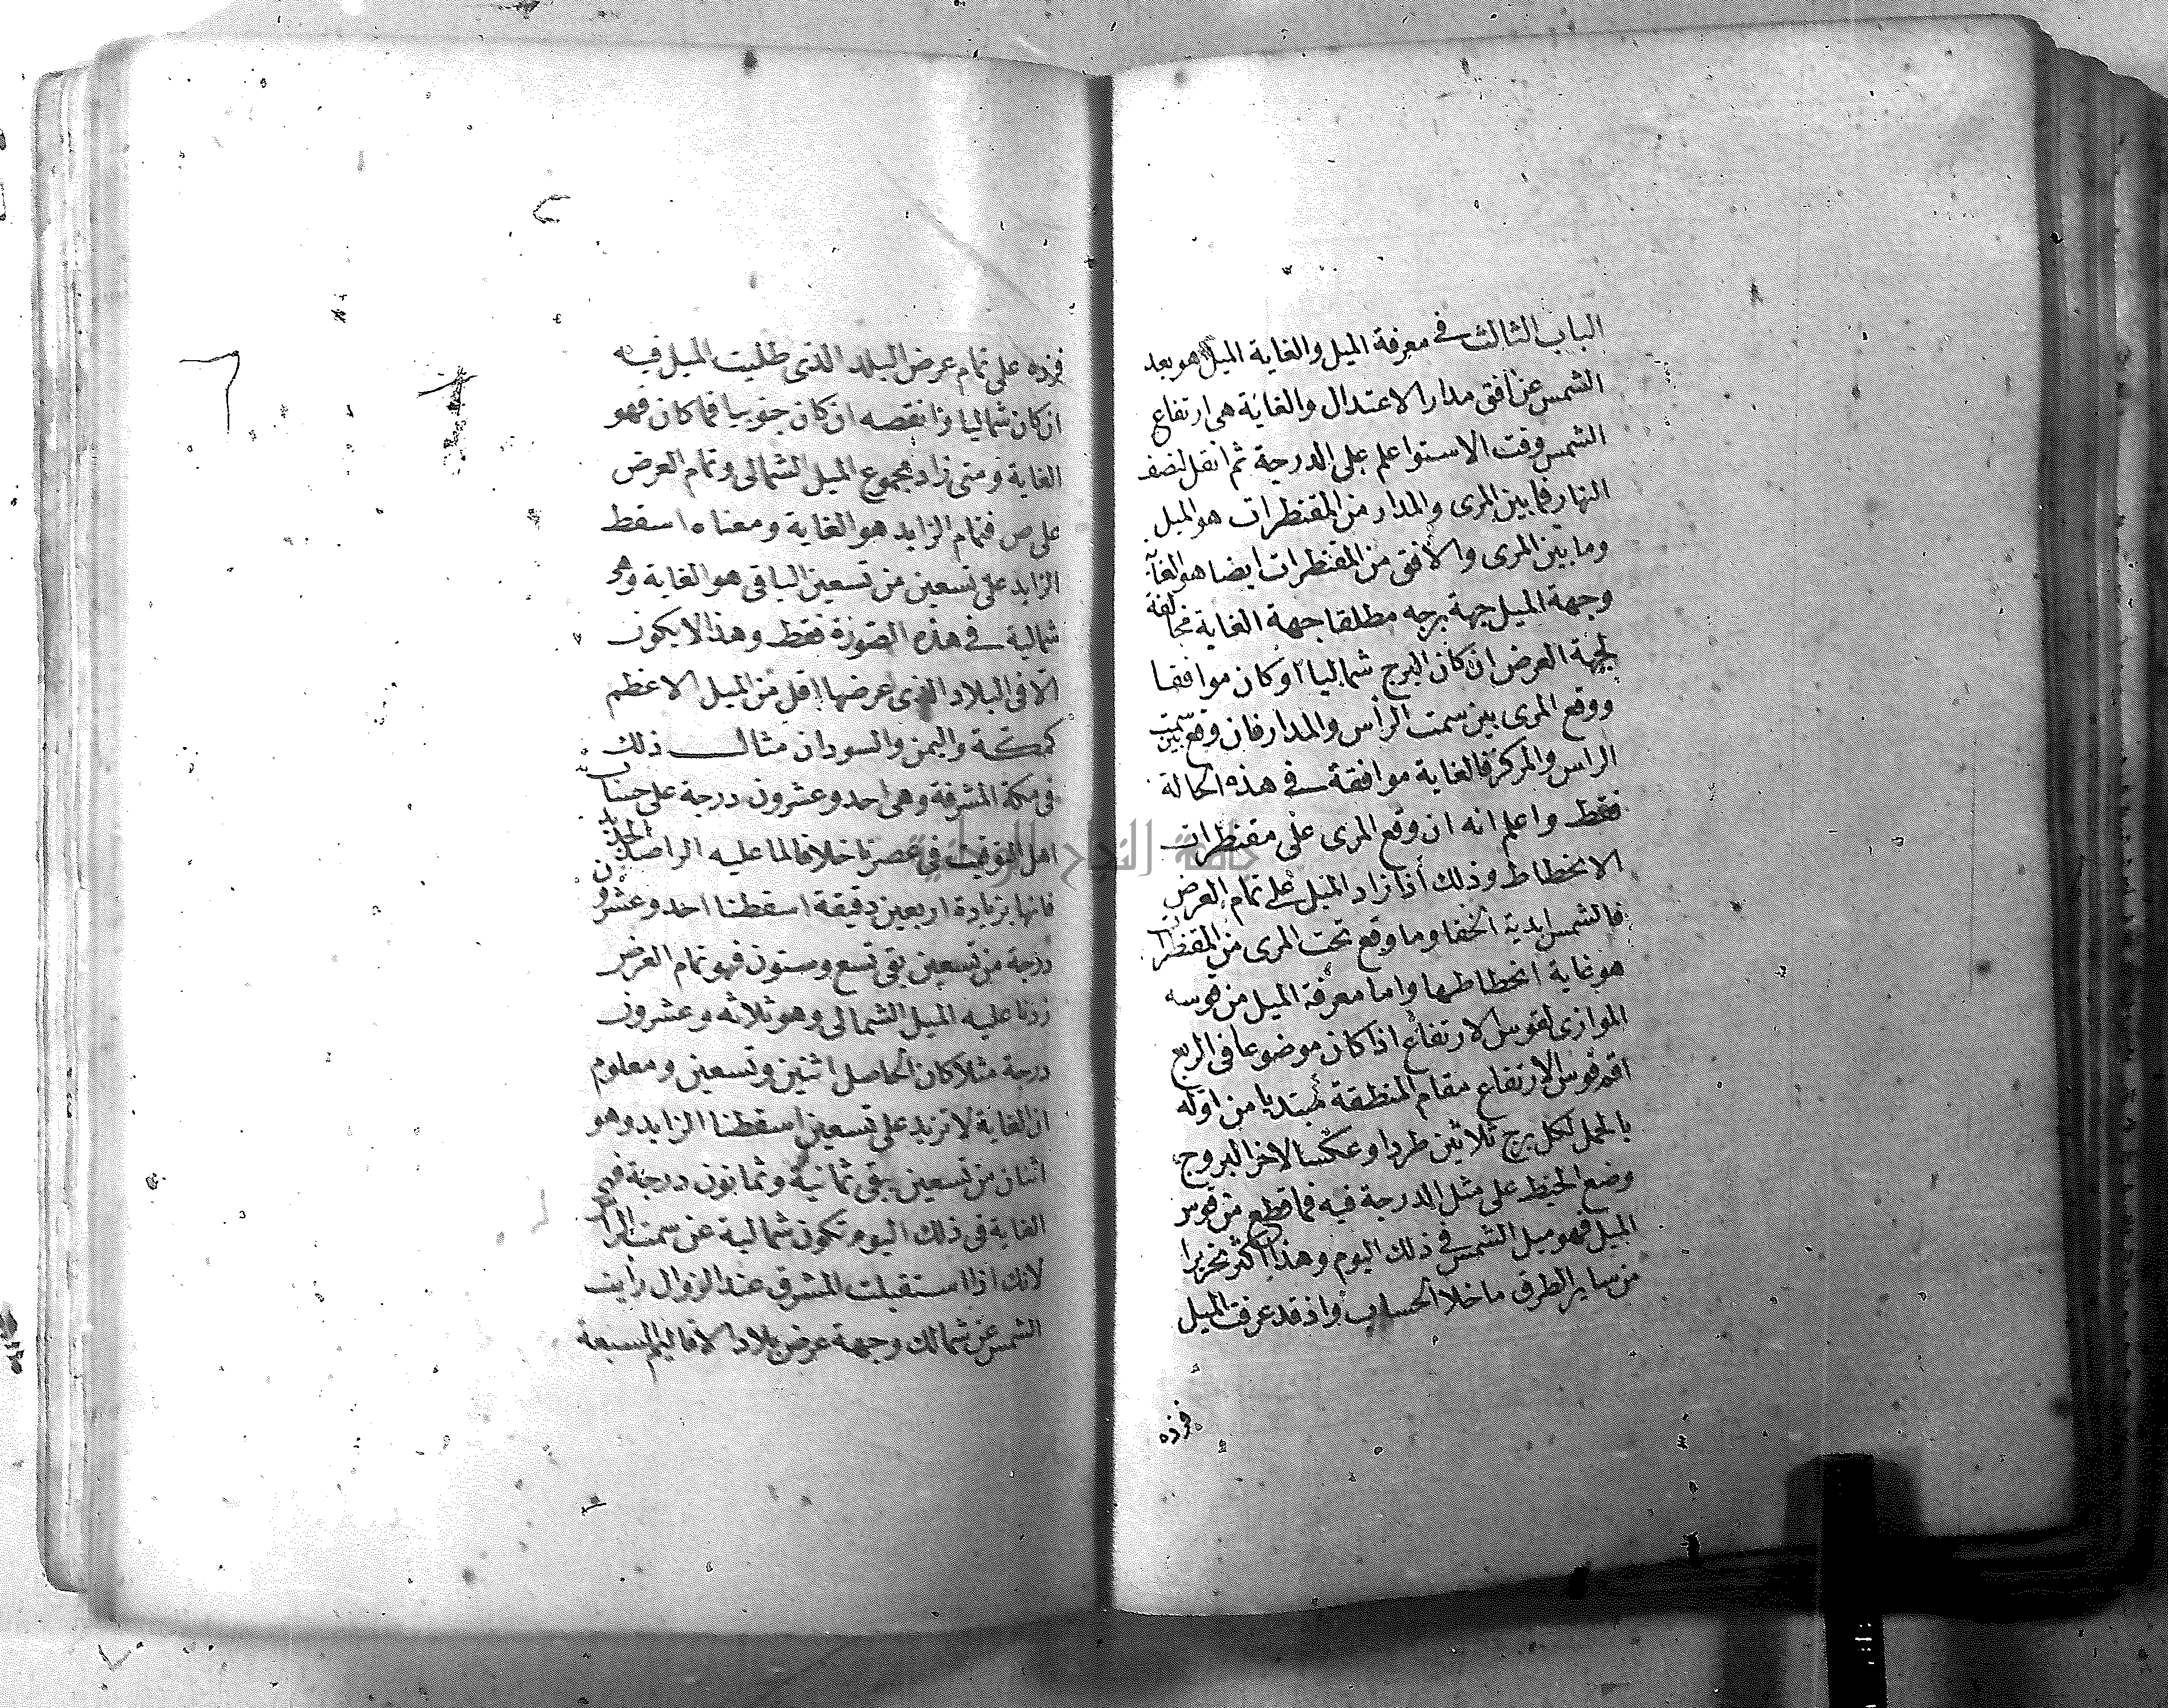 الباب الثالث في معرفة الميل والغاية الميل هو بعد
الشمس عن افق مدار الاعتدال والغاية هى ارتفاع
الشمس وقت الاستوا علم على الدرجة ثم انقل لنصف
النهار فما بين المرى والمدار من المقنطرات هو الميل
وما بين المرى والافق من المقنطرات ايضا هو الغاية
وجهة الميل جهة برجه مطلقا جهة الغاية مخالفة
لجهة العرض ان كان البرج شماليا او كان موافقا
ووقع المرى بين سمت الراس والمدار فان وقع بين سمت
الراس والمركز فالغاية موافقة في هذه الحالة
فقط واعلم انه ان وقع المرى على مقنطرات
الانحطاط وذلك اذا زاد الميل على تمام العرض
فالشمس ابدية الخفا وما وقع تحت المرى من المقنطرات
هو غاية انحطاطها واما معرفة الميل من قوسه
الموازى لقوس الارتفاع اذا كان موضوعا فى الربع
اقم قوس الارتفاع مقام المنطقة مبتديا من اوله
بالحمل لكل برج ثلاثين طردا وعكسا لاخر البروج
وضع الخيط على مثل الدرجة فيه فما قطع من قوس
الميل فهو ميل الشمس في ذلك اليوم وهذا اكثر تحريرا
من ساير الطرق ما خلا الحساب واذ قد عرفت الميل
فزده
فزده على تمام عرض البلد الذى طلبت الميل فيه
ان كان شماليا وانقصه ان كان جنوبيا فما كان فهو
الغاية ومتى زاد مجموع الميل الشمالى وتمام العرض
على ص فتمام الزايد هو الغاية ومعناه اسقط
الزايد على تسعين من تسعين الباقى هو الغاية وهى
شمالية في هذه الصورة فقط وهذا لا يكون
الا فى البلاد الذى عرضها اقل من الميل الاعظم
كمكة واليمن والسودان مثال ذلك
فى مكة المشرفة وهى احد وعشرون درجة على حساب
اهل التوقيت فى عصرنا خلافا لما عليه الراصد الجديد
فانها بزيادة اربعين دقيقة اسقطنا احد وعشرون
درجة من تسعين بقى تسع وستون فهو تمام العرض
زدنا عليه الميل الشمالى وهو ثلاثه وعشرون
درجة مثلا كان الحاصل اثنين وتسعين ومعلوم
ان الغاية لا تزيد على تسعين اسقطنا الزايد وهو
اثنان من تسعين بقى ثمانية وثمانون درجة فهى
الغاية فى ذلك اليوم تكون شمالية عن سمت الراس
لانك اذا استقبلت المشرق عند الزوال رايت
الشمس عن شمالك وجهة عرض بلاد الاقاليم السبعة